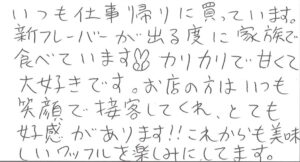 いつも仕事帰りに買っています。
新フレーバーが出る度に家族で
食べています カリカリで甘くて
大好きです。お店の方はいつも
笑顔で接客してくれ、とても
好感があります!!これからも美味
しいワッフルを楽しみにしてます。